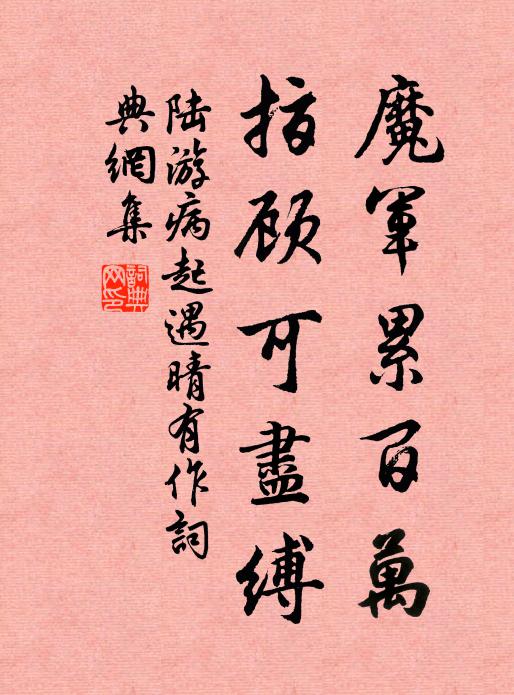 魔軍累百萬
指顾可盡縛
陆游病起遇晴有作詞
典網集
詞典
网印